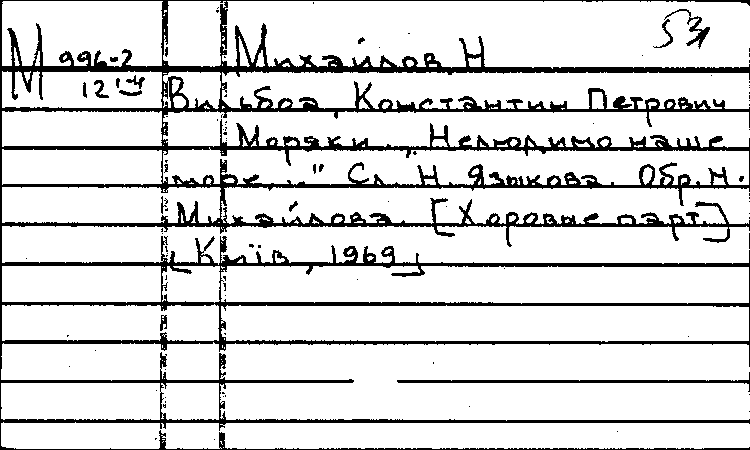 М 996-2 Михайлов, Н 53
12
Вильбоа, Константин Петрович
Моряки. „Нелюдимо наше
море..." Сл. Н. Языкова. Обр. Н.
Михайлова. [Хоровые парт.]
[Київ, 1969]